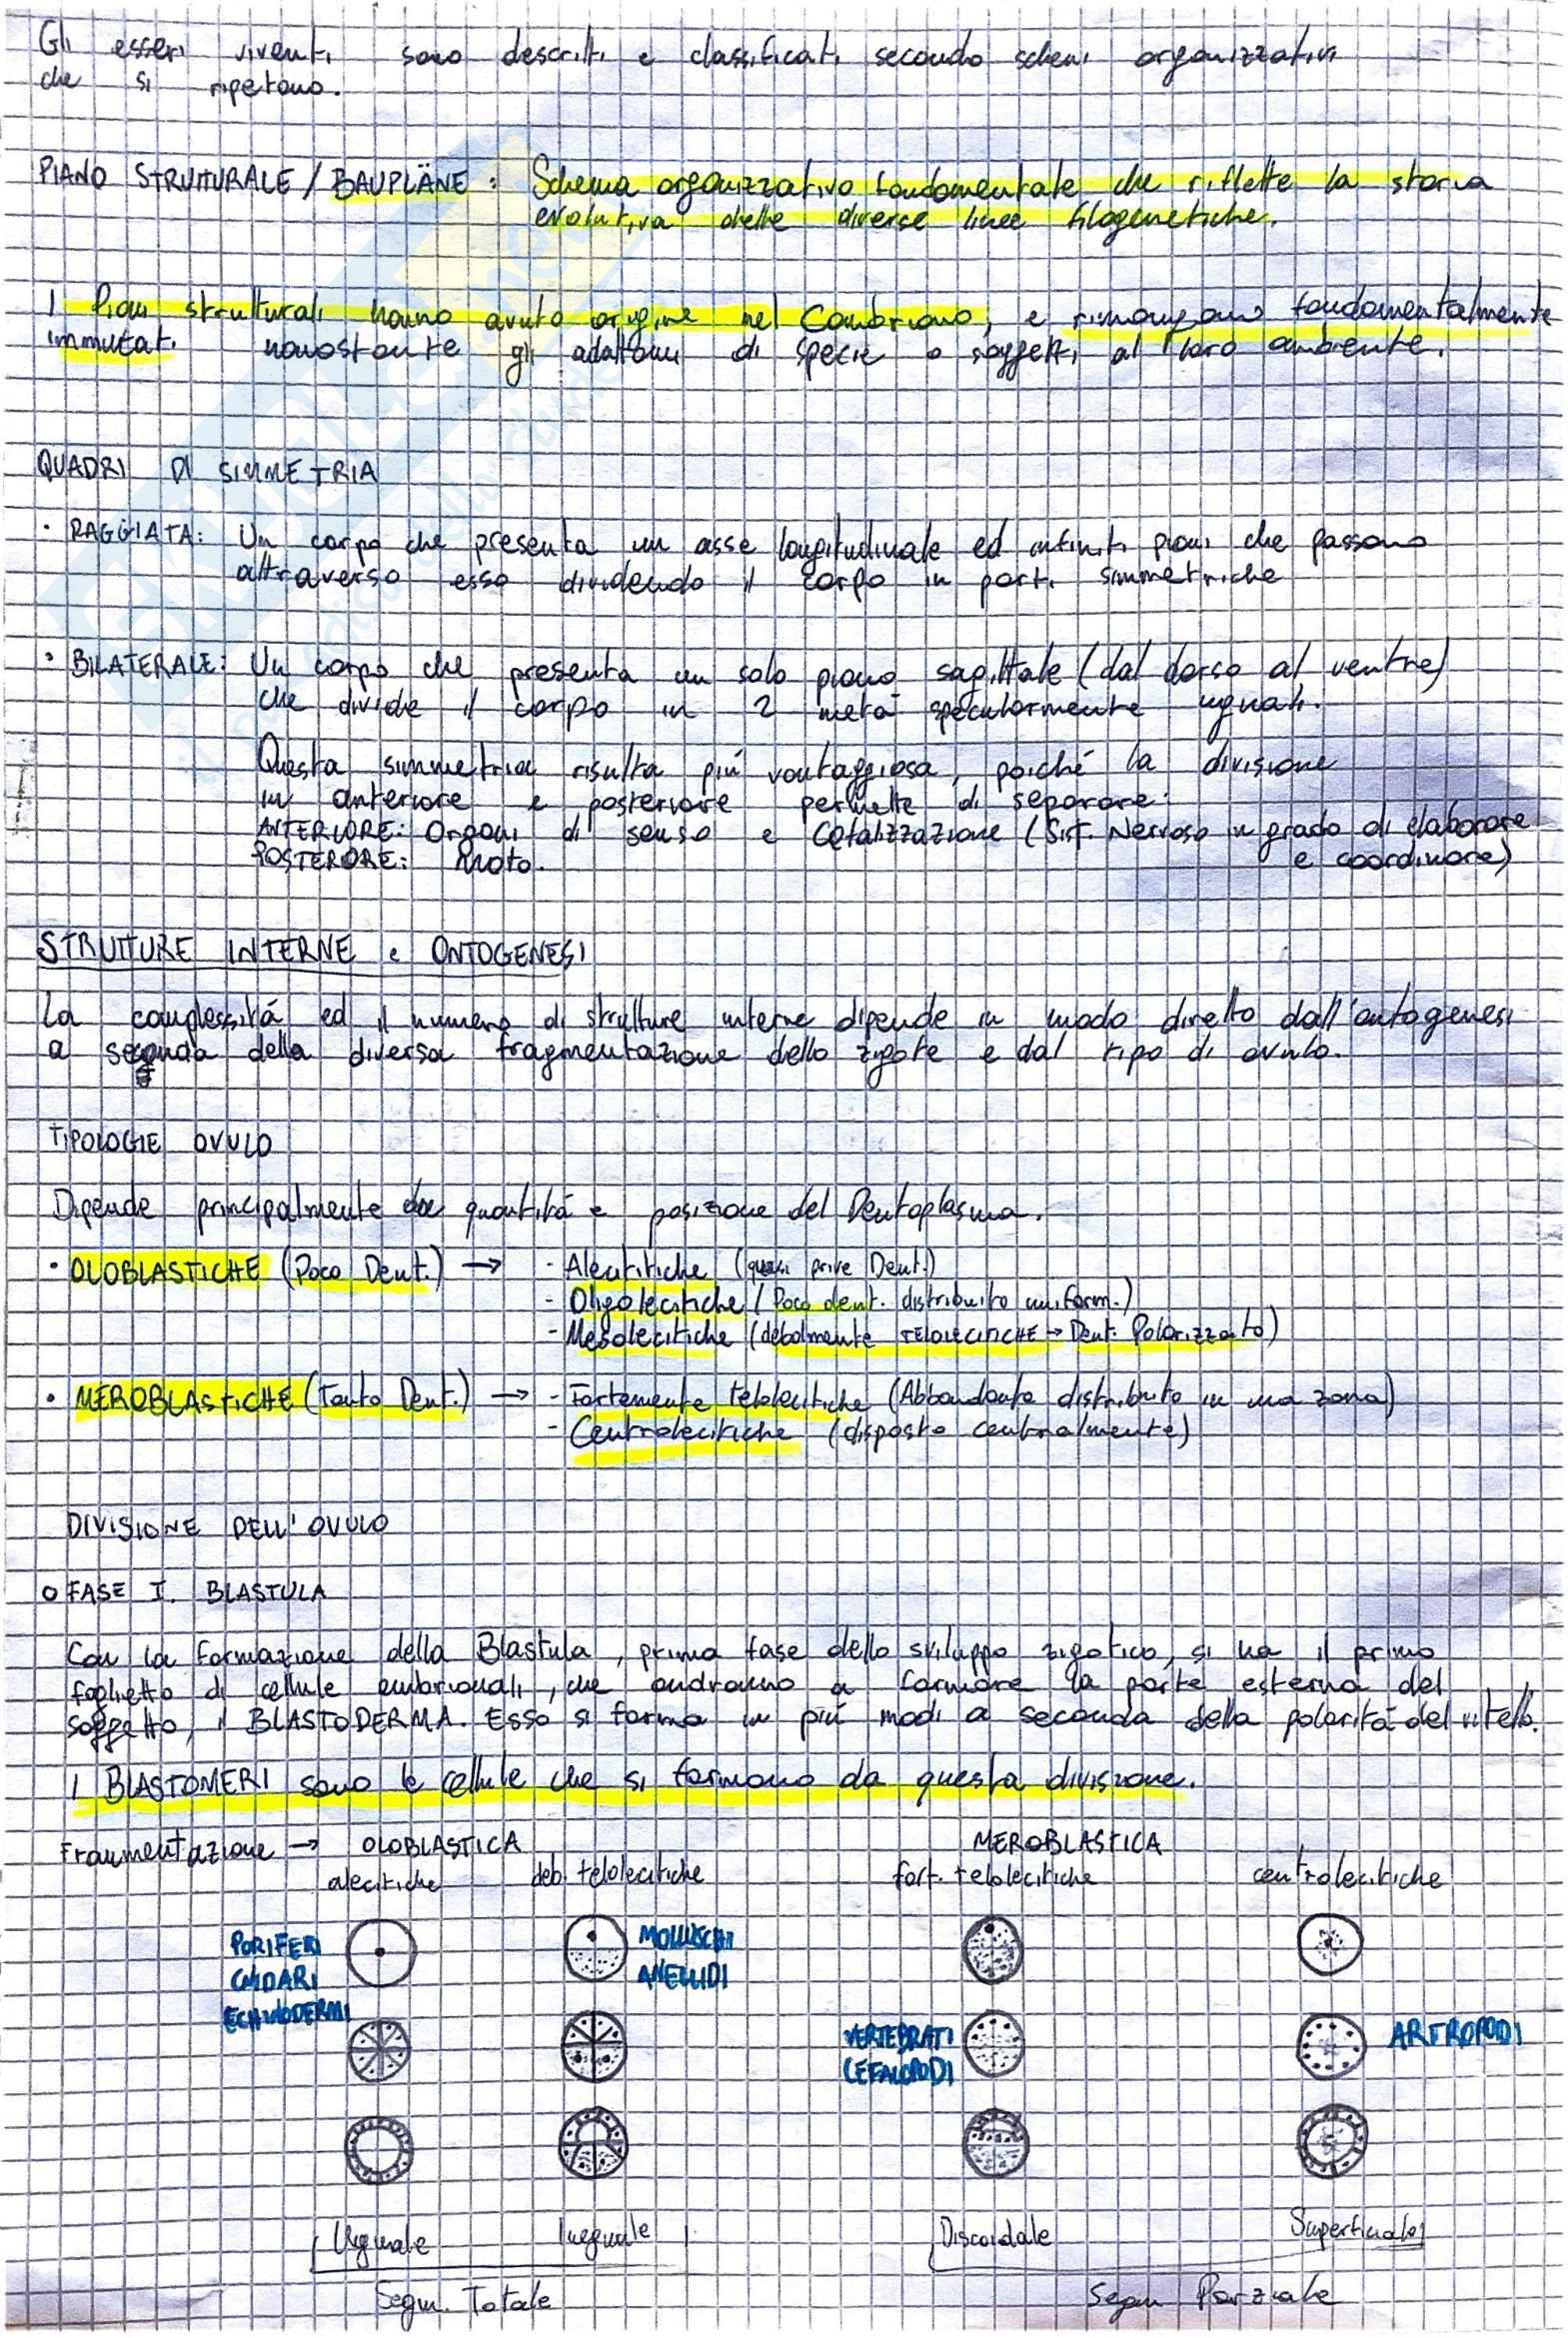 Gli esseri viventi sono descritti e classificati secondo schemi organizzativi
che si ripetono.
PIANO STRUTTURALE / BAUPLÄNE : Schema organizzativo fondamentale che riflette la storia
evolutiva delle diverse linee filogenetiche.
I Piani strutturali hanno avuto origine nel Cambriano, e rimangono fondamentalmente
immutati nonostante gli adattam. di specie o soggetti al loro ambiente.
QUADRI DI SIMMETRIA
· RAGGIATA: Un corpo che presenta un asse longitudinale ed infiniti piani che passano
attraverso esso dividendo il corpo in parti simmetriche
· BILATERALE: Un corpo che presenta un solo piano sagittale (dal dorso al ventre)
che divide il corpo in 2 metà specularmente uguali.
Questa simmetria risulta più vantaggiosa, poiché la divisione
in anteriore e posteriore permette di separare:
ANTERIORE: Organi di senso e Cefalizzazione (Sist. Nervoso in grado di elaborare
e coordinare)
POSTERIORE: Moto.
STRUTTURE INTERNE e ONTOGENESI
La complessitá ed il numero di strutture interne dipende in modo diretto dall'ontogenesi
a seconda della diversa fragmentazione dello zigote e dal tipo di ovulo.
TIPOLOGIE OVULO
Dipende principalmente da quantitá e posizione del Deutoplasma.
· OLOBLASTICHE (Poco Deut.) → - Alecitiche (quasi prive Deut.)
- Oligolecitiche (Poco deut. distribuito uniform.)
- Mesolecitiche (debolmente TELOLECITICHE → Deut. Polarizzato)
· MEROBLASTICHE (Tanto Deut.) → - Fortemente telolecitiche (Abbondante distribuito in una zona)
- Centrolecitiche (disposto centralmente)
DIVISIONE DELL'OVULO
o FASE I. BLASTULA
Con la formazione della Blastula, prima fase dello sviluppo zigotico, si ha il primo
foglietto di cellule embrionali, che andranno a formare la parte esterna del
soggetto, il BLASTODERMA. Esso si forma in più modi a seconda della polaritá del vitello.
I BLASTOMERI sono le cellule che si formano da questa divisione.
Frammentazione → OLOBLASTICA MEROBLASTICA
alecitiche deb. telolecitiche fort. telolecitiche centrolecitiche
PORIFERI MOLLUSCHI
CNIDARI ANELLIDI
ECHINODERMI
VERTEBRATI ARTROPODI
CEFALOPODI
Uguale Ineguale Discoidale Superficiale
Segm. Totale Segm Parziale